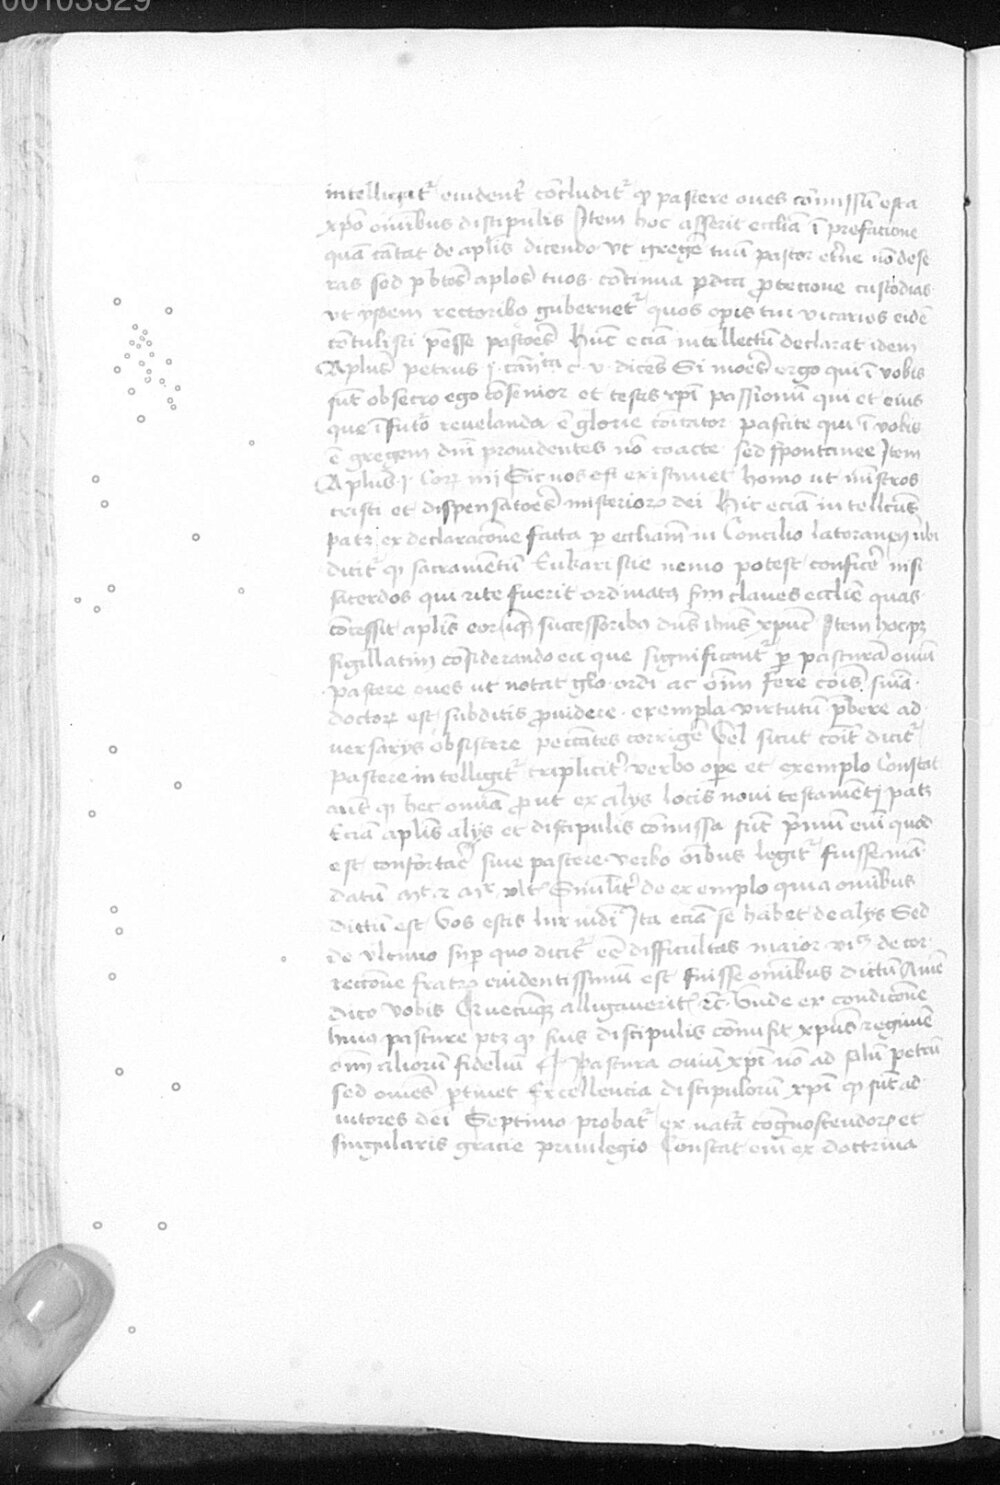 00103329
intelligit᷑ euident᷑ cōcludit᷑ qͥ pascere oues cōmissū est a
xpō omībus discipulis Item hoc asserit ecclīa ī prefacione
quā cātat de aplīs dicendo vt gregē tuū pastor et᷑ne nō dese
ras sed p bīos aplōs tuos continua pdca ꝓtectione custodias
vt eisdem rectoribꝰ gubernet᷑ quos opis tui vicarios eidē
cōtulisti pēsse pastōes Hūc eciā intellectū declarat idem
Aplūs petrus j canīca c v dicēs Si mōes ergo qui ī vobis
sūt obsecro ego cōsenior et testis xpī passionū qui et eius
que ī futō reuelanda ē glorie cōicator pascite qui ī vobis
ē gregem dnī prouidentes nō coacte sed spontanee Item
Aplūs j Corꝝ iiij Sic nos existimet homo ut mīstros
cristi et dispensatōes misterioꝝ dei Hic eciā intellcūs
patꝫ ex declaracōne facta p eccliam in Concilio latoranen̄ ubi
dicit᷑ qͥ sacramentū Eukaristie nemo potest conficē nisi
sacerdos qui rite fuerit ordinatꝰ scdm claues ecclīe quas
cōcessit aplīs eorūqꝫ successoribꝰ dn̄s ihūs xpūs Item hoc pꝫ
sigillatim cōsiderando ea que significant᷑ p pasturā ouiū
pascere oues ut notat glo ordi ac oīm fere cōis snīa
doctoꝝ est subditis ꝓuidere exempla virtutū p̄bere ad
uersarijs obsistere peccātes corrigē Vel sicut cōit᷑ dicit᷑
pascere intelligit᷑ triplicit᷑ verbo ope et exemplo Constat
aut̄ qͥ hec omīa ꝓut ex alijs locis noui testamenti patꝫ
Eciā aplīs alijs et discipulis cōmissa sūt Primū enī quod
est confortaē siue pascere verbo oībus legit᷑ fuisse mā
datū Simīlit᷑ de exemplo quia omībus
dictū est Vos estis lux mūdi Ita eciā se habet de alijs Sed
de vltimo sup quo dicit᷑ eē difficultas maior viꝫ de cor
rectione fratꝝ euidentissimū est fuisse omībus dictū Amē
dico vobis Quecūqꝫ alligaueritꝭ ꝛc Vnde ex condicōne
huiꝰ pasture ptꝫ qͥ suis discipulis cōmisit xpūs regimē
oīm aliorum fidelium Et pastura ouiū xpī nō ad solū petrū
sed omēs ptinet Excellencia discipulorū xpī qͥ sūt ad
iutores dei Septimo probat᷑ ex natā cognoscendoꝝ et
singularis gracie priuilegio Constat enī ex doctrina